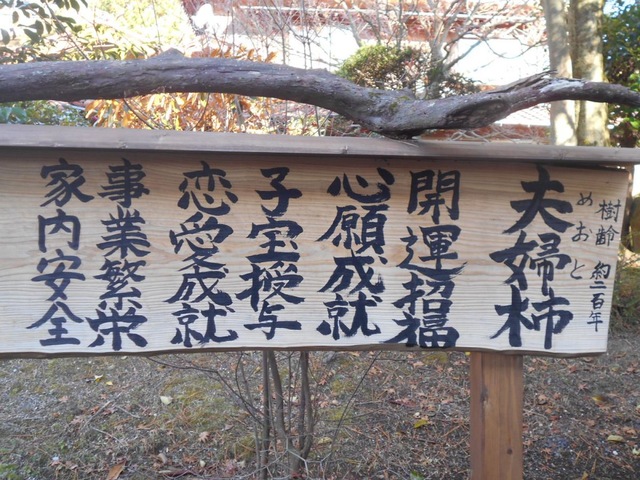 樹齢 約二百年
夫婦柿
めおと
開運招福
心願成就
子宝授与
恋愛成就
事業繁栄
家内安全